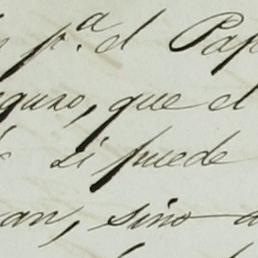 n p.ª el Pap
eguro, que el
si puede
an, sino a